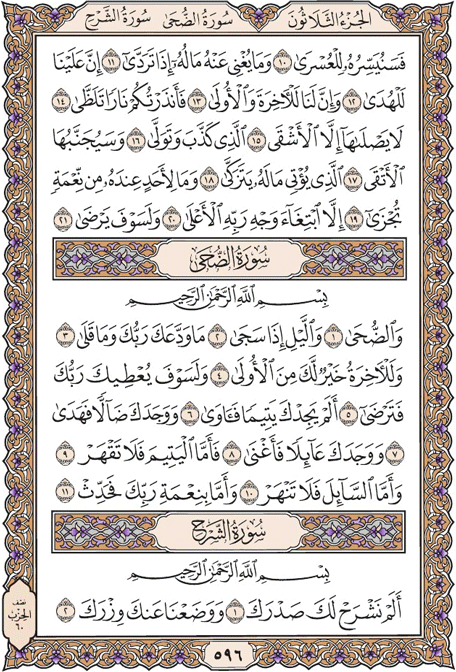 الجزء الثلاثون سورة الضحى سورة الشرح
فَسَنُيَسِّرُهُۥ لِلْعُسْرَىٰ ١٠ وَمَا يُغْنِى عَنْهُ مَالُهُۥٓ إِذَا تَرَدَّىٰٓ ١١ إِنَّ عَلَيْنَا
لَلْهُدَىٰ ١٢ وَإِنَّ لَنَا لَلْـَٔاخِرَةَ وَٱلْأُولَىٰ ١٣ فَأَنذَرْتُكُمْ نَارًا تَلَظَّىٰ ١٤
لَا يَصْلَىٰهَآ إِلَّا ٱلْأَشْقَى ١٥ ٱلَّذِى كَذَّبَ وَتَوَلَّىٰ ١٦ وَسَيُجَنَّبُهَا
ٱلْأَتْقَى ١٧ ٱلَّذِى يُؤْتِى مَالَهُۥ يَتَزَكَّىٰ ١٨ وَمَا لِأَحَدٍ عِندَهُۥ مِن نِّعْمَةٍ
تُجْزَىٰٓ ١٩ إِلَّا ٱبْتِغَآءَ وَجْهِ رَبِّهِ ٱلْأَعْلَىٰ ٢٠ وَلَسَوْفَ يَرْضَىٰ ٢١
سُورَةُ الضُّحَىٰ
بِسْمِ ٱللَّهِ ٱلرَّحْمَٰنِ ٱلرَّحِيمِ
وَٱلضُّحَىٰ ١ وَٱلَّيْلِ إِذَا سَجَىٰ ٢ مَا وَدَّعَكَ رَبُّكَ وَمَا قَلَىٰ ٣
وَلَلْـَٔاخِرَةُ خَيْرٌ لَّكَ مِنَ ٱلْأُولَىٰ ٤ وَلَسَوْفَ يُعْطِيكَ رَبُّكَ
فَتَرْضَىٰٓ ٥ أَلَمْ يَجِدْكَ يَتِيمًا فَـَٔاوَىٰ ٦ وَوَجَدَكَ ضَآلًّا فَهَدَىٰ
٧ وَوَجَدَكَ عَآئِلًا فَأَغْنَىٰ ٨ فَأَمَّا ٱلْيَتِيمَ فَلَا تَقْهَرْ ٩
وَأَمَّا ٱلسَّآئِلَ فَلَا تَنْهَرْ ١٠ وَأَمَّا بِنِعْمَةِ رَبِّكَ فَحَدِّثْ ١١
سُورَةُ الشَّرْحِ
بِسْمِ ٱللَّهِ ٱلرَّحْمَٰنِ ٱلرَّحِيمِ
أَلَمْ نَشْرَحْ لَكَ صَدْرَكَ ١ وَوَضَعْنَا عَنكَ وِزْرَكَ ٢
نصف
الحزب
٦٠
٥٩٦